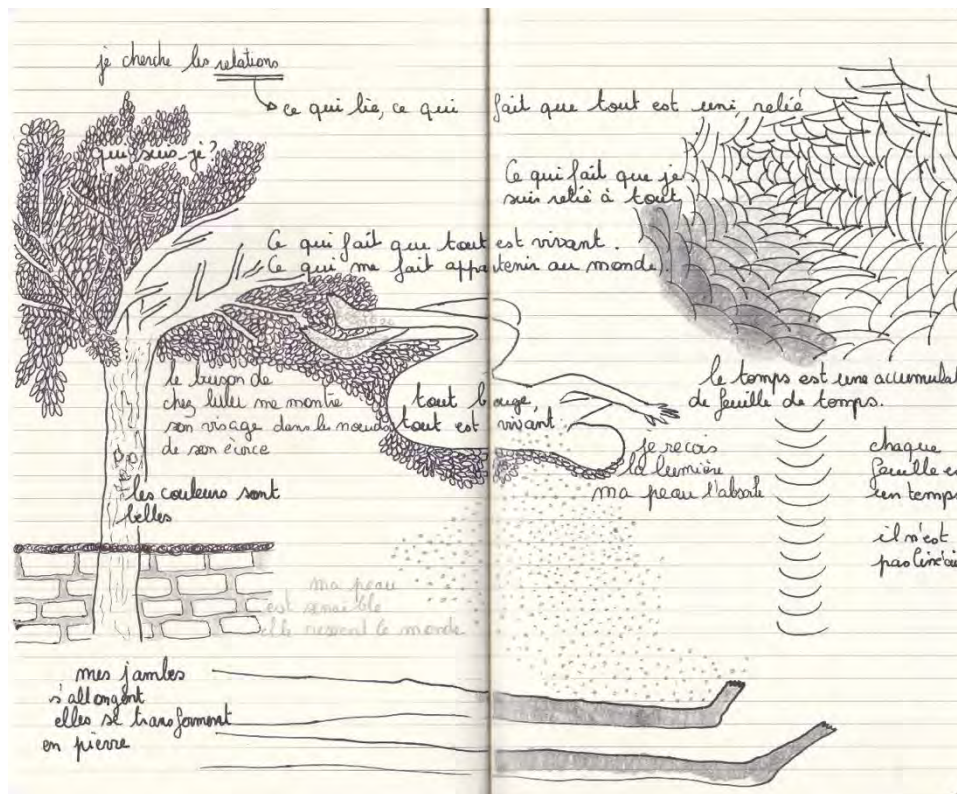 je cherche les relations
ce qui lie, ce qui fait que tout est uni, relié
qui suis-je ?
Ce qui fait que je
suis relié à tout
Ce qui fait que tout est vivant.
Ce qui me fait appartenir au monde).
le buison de
chez lulu me montre
son visage dans le nœud
de son écorce
tout bouge,
tout est vivant,
le temps est une accumulat
de feuille de temps.
je reçois
la lumière
ma peau l'absorbe
chaque
feuille e
un temps
il n'est
pas linéai
les couleurs sont
belles
ma peau
est sensible
elle ressent le monde
mes jambes
s'allongent
elles se transforment
en pierre